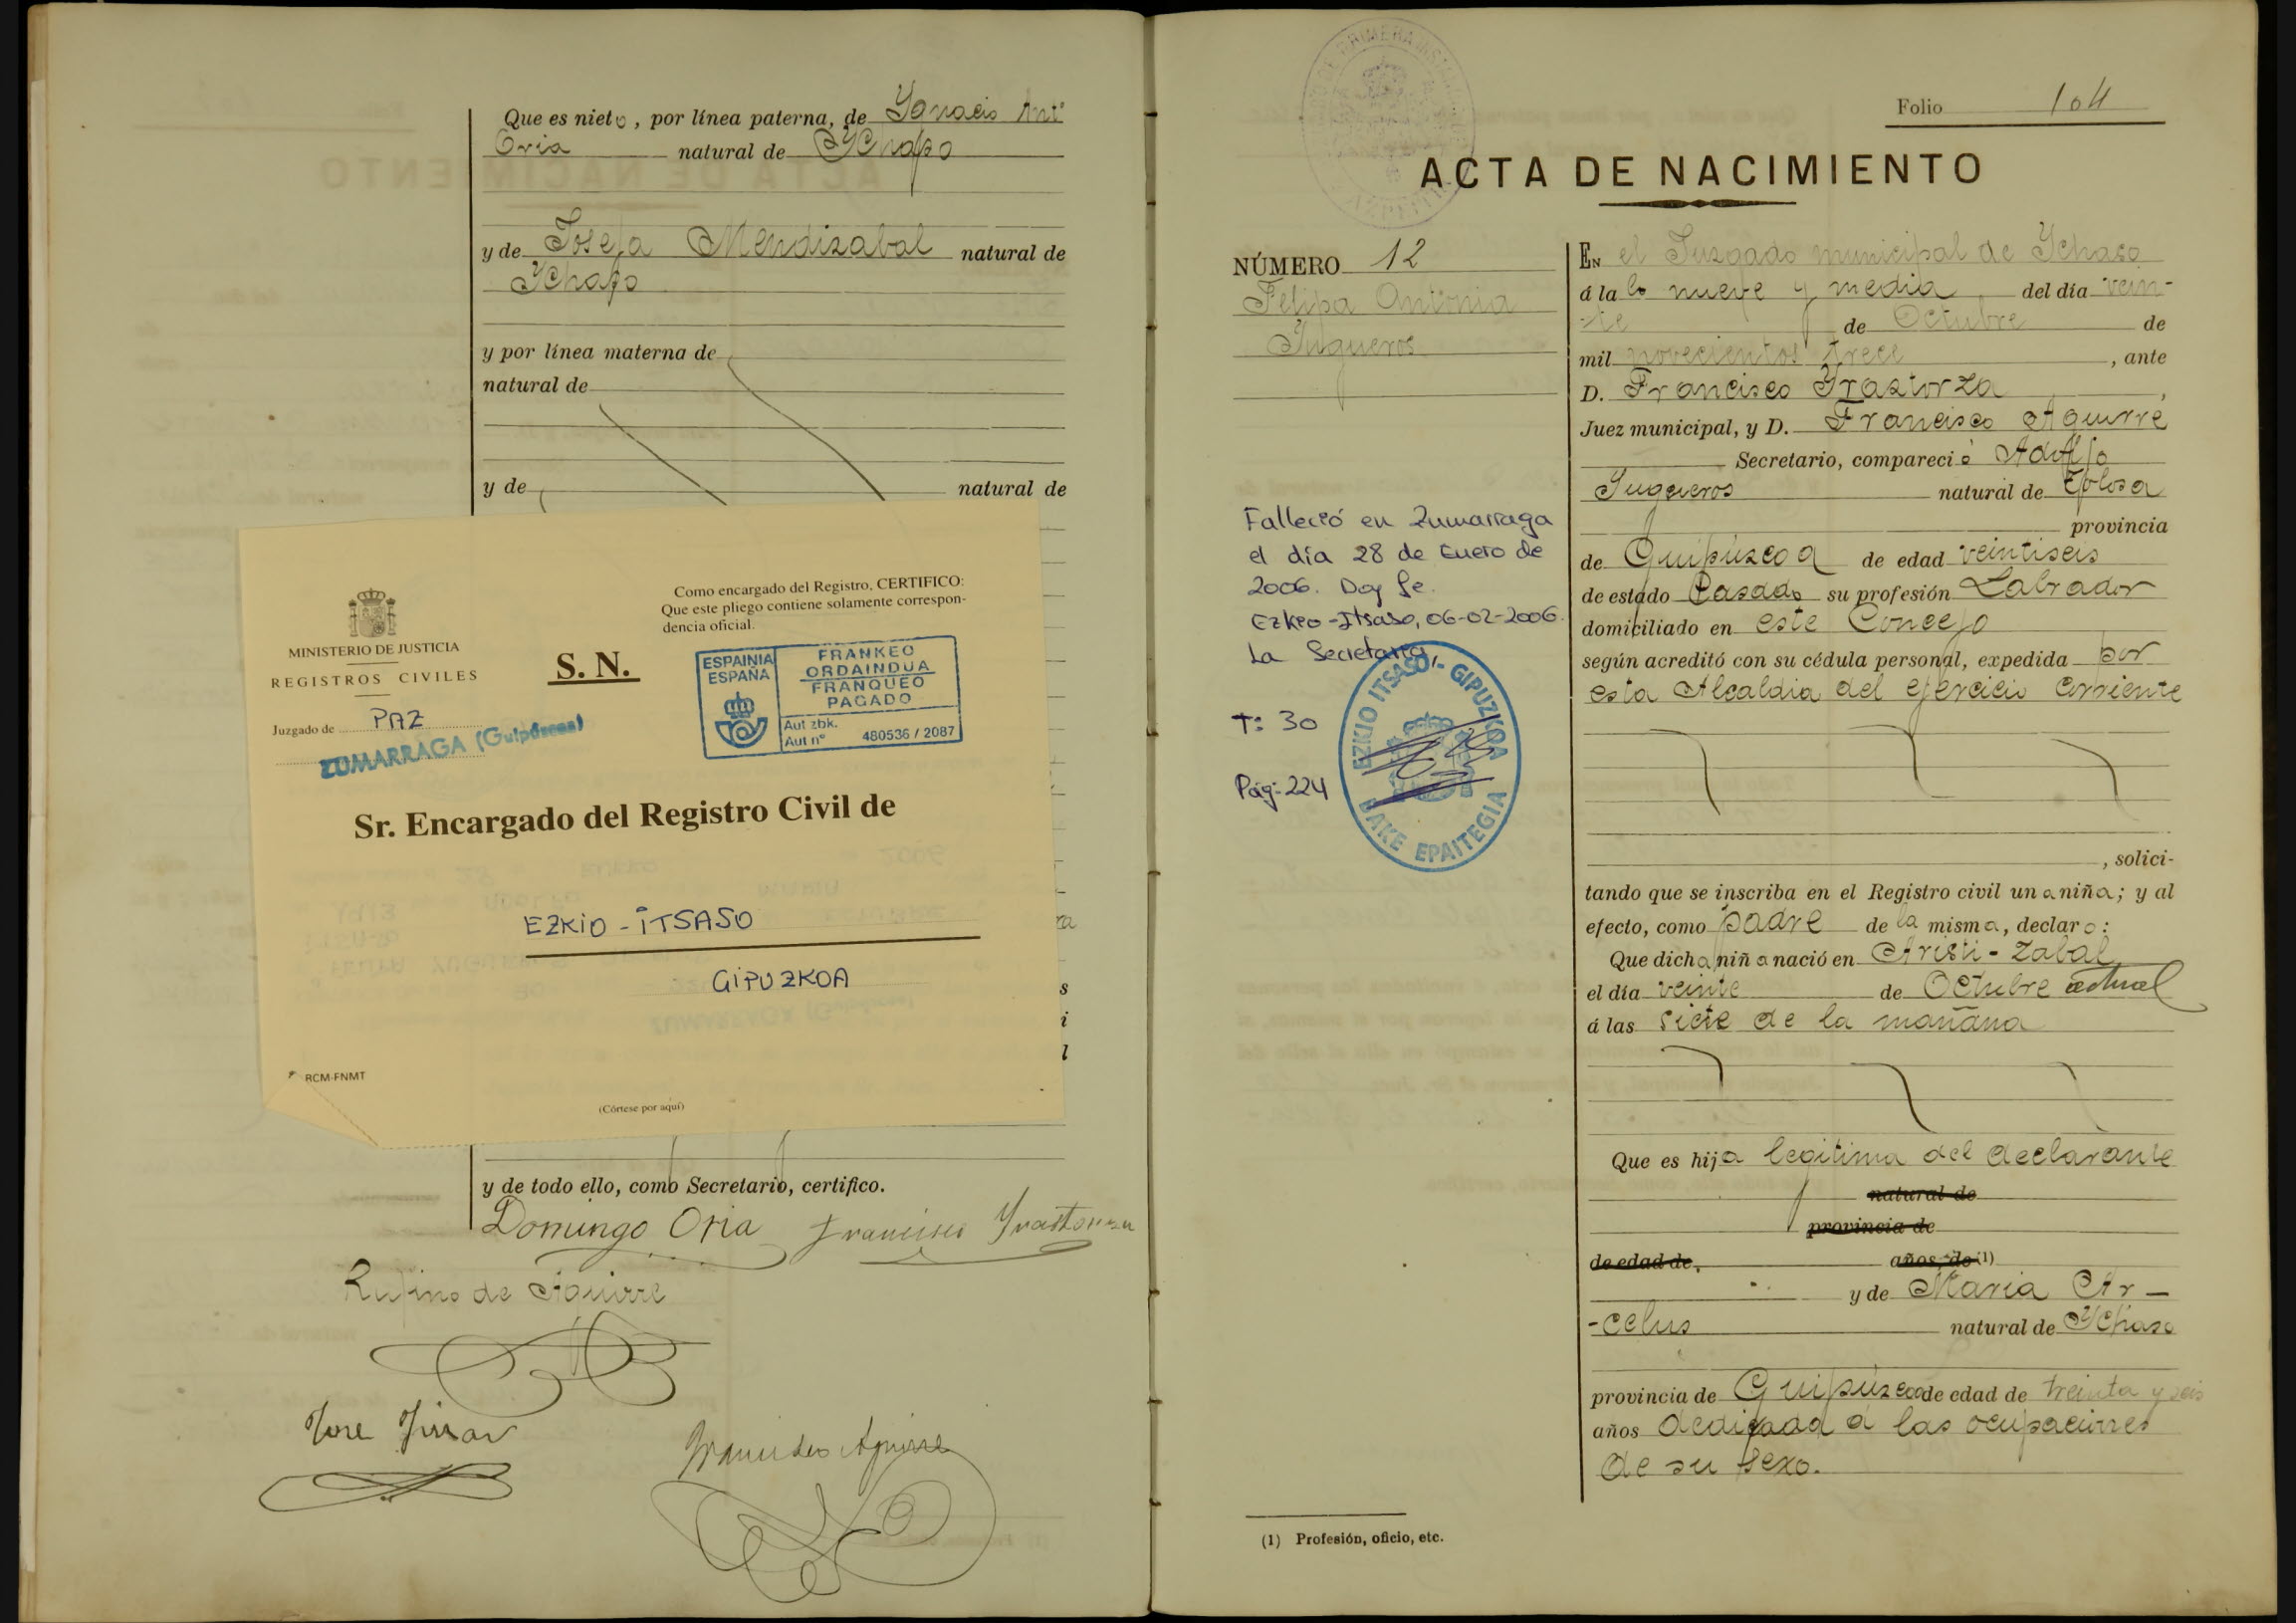 Que es nieto, por línea paterna, de Ygnacio Antº
Oria natural de Ychaso
y de Josefa Mendizabal natural de
Ychaso
y por línea materna de
natural de
y de natural de
Como encargado del Registro, CERTIFICO:
Que este pliego contiene solamente correspon-
dencia oficial.
MINISTERIO DE JUSTICIA
REGISTROS CIVILES
S. N.
ESPAINIA
ESPAÑA
FRANKEO
ORDAINDUA
FRANQUEO
PAGADO
Aut zbk.
Aut nº 480536 / 2087
Juzgado de PAZ
ZUMARRAGA (Guipúscoa)
Sr. Encargado del Registro Civil de
EZKIO - ITSASO
GIPUZKOA
RCM-FNMT
(Córtese por aquí)
ra
s
i
l
y de todo ello, como Secretario, certifico.
Domingo Oria Francisco Yrastorza
Rufino de Aguirre
Jose
Francisco Aguirre
Folio 104
ACTA DE NACIMIENTO
NÚMERO 12
Felipa Antonia
Yugueros
Falleció en Zumarraga
el día 28 de Enero de
2006. Doy fe.
Ezkio-Itsaso, 06-02-2006
La Secretaria,
T: 30
Pág: 224
EZKIO ITSASO - GIPUZKOA
BAKE EPAITEGIA
En el Juzgado municipal de Ychaso
á la ls nueve y media del día vein-
-te de Octubre de
mil novecientos trece, ante
D. Francisco Yrastorza,
Juez municipal, y D. Francisco Aguirre
Secretario, compareció Adolfo
Yugueros natural de Tolosa
provincia
de Guipúzcoa de edad veintiseis
de estado Casado su profesión Labrador
domiciliado en este Concejo
según acreditó con su cédula personal, expedida por
esta Alcaldia del ejercicio corriente
, solici-
tando que se inscriba en el Registro civil una niña; y al
efecto, como padre de la misma, declaro:
Que dicha niña nació en Aristi-Zabal
el día veinte de Octubre actual
á las siete de la mañana
Que es hija legitima del declarante
natural de
provincia de
de edad de años, de (1)
y de Maria Ar-
-celus natural de Ychaso
provincia de Guipúzcoa de edad de treinta y seis
años dedicada á las ocupaciones
de su sexo.
(1) Profesión, oficio, etc.